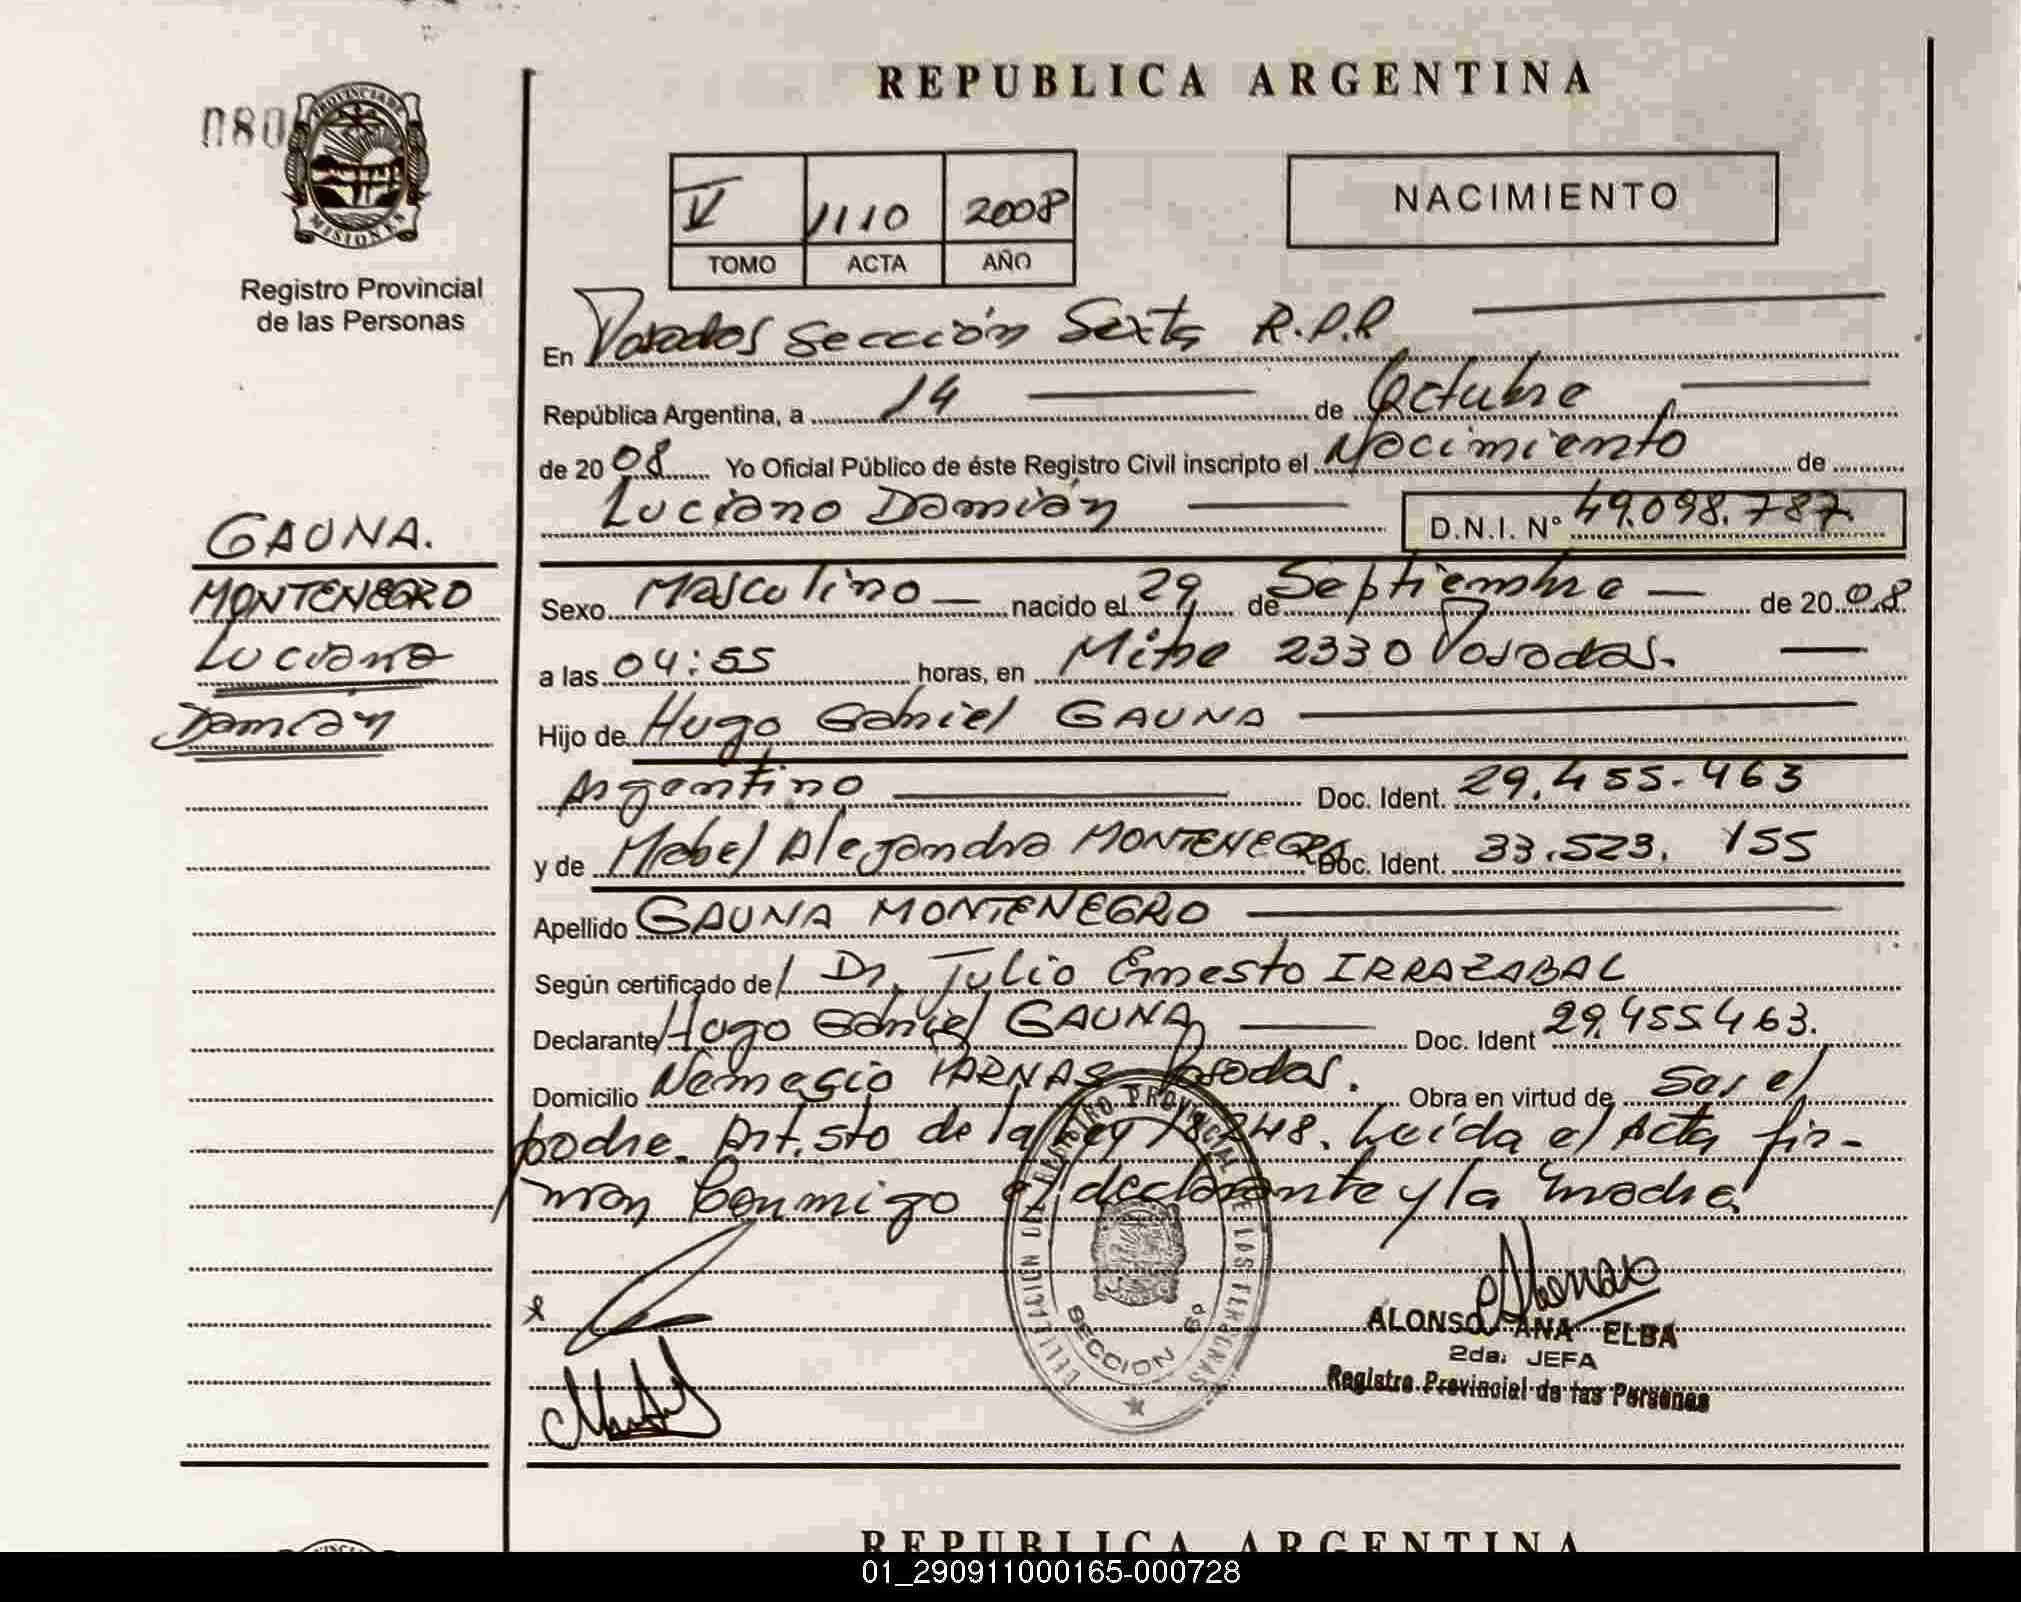 REPUBLICA ARGENTINA
080
PROVINCIA DE
MISIONES
Registro Provincial
de las Personas
V 1110 2008
TOMO ACTA AÑO
NACIMIENTO
En Posadas Sección Sexta R.P.P
República Argentina, a 14 de Octubre
de 2008 Yo Oficial Público de éste Registro Civil inscripto el Nacimiento de
Luciano Damián D.N.I. Nº 49.098.787
GAUNA.
MONTENEGRO
Luciano
Damián
Sexo Masculino nacido el 29 de Septiembre de 2008
a las 04:55 horas, en Mitre 2330 Posadas.
Hijo de Hugo Gabriel GAUNA
Argentino Doc. Ident. 29.455.463
y de Mabel Alejandra MONTENEGRO Doc. Ident. 33.523.155
Apellido GAUNA MONTENEGRO
Según certificado del Dr. Julio Ernesto IRRAZABAL
Declarante Hugo Gabriel GAUNA Doc. Ident 29.455.463.
Domicilio Nemesio PARNAS Posadas. Obra en virtud de Ser el
padre. Art. 5to de la Ley 18.248. Leída el Acta fir-
man Conmigo el declarante y la madre
PROVINCIAL DE LAS PERSONAS
SECCION 6ª
ALONSO ANA ELBA
2da. JEFA
Registro Provincial de las Personas
REPUBLICA ARGENTINA
01_290911000165-000728